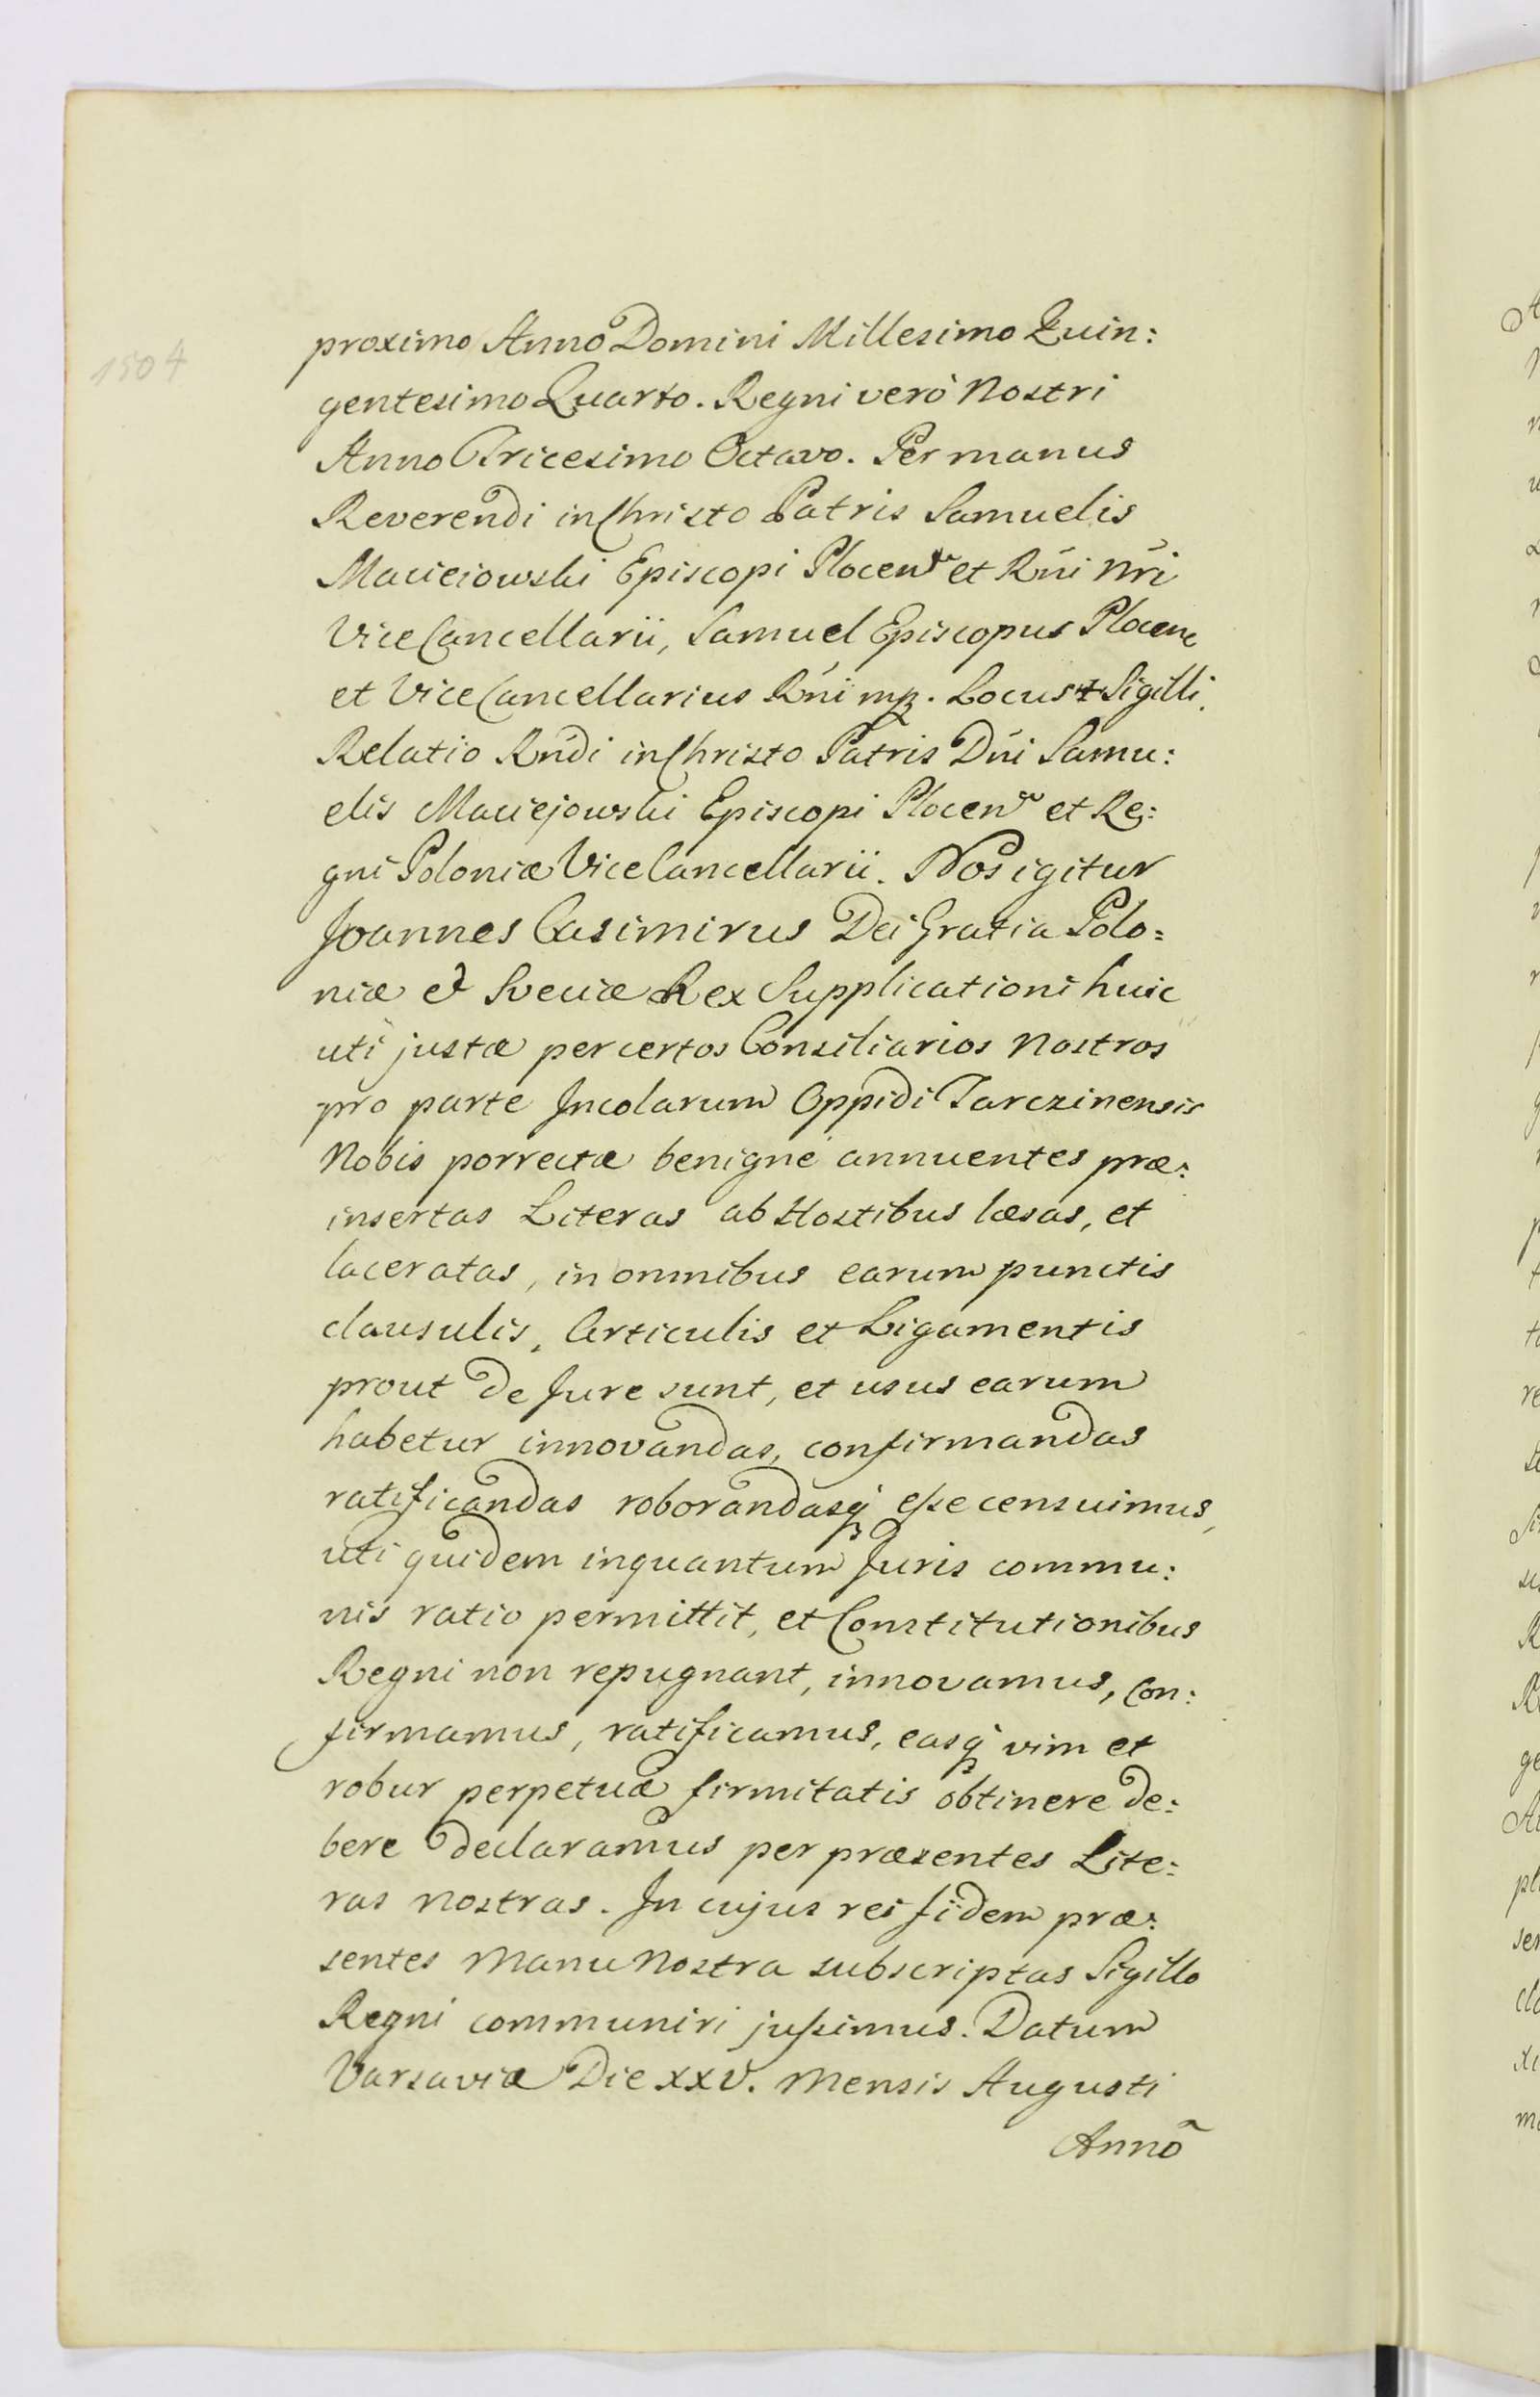 1504
proximo Anno Domini Millesimo Quin:
gentesimo Quarto. Regni verò Nostri
Anno Tricesimo Octavo. Per manus
Reverendi in Christo Patris Samuelis
Macieiowski Episcopi Plocen et Rńi Nri
Vice Cancellarii, Samuel Episcopus Plocen
et Vice Cancellarius Rńi mp. Locus + Sigilli.
Relatio Rńdi in Christo Patris Dńi Samu:
elis Maciejowski Episcopi Plocen et Re:
gni Poloniæ Vice Cancellarii. Nos igitur
Joannes Casimirus Dei Gratia Polo=
niæ & Sveciæ Rex Supplicationi huic
uti justæ per certos Consiliarios Nostros
pro parte Incolarum Oppidi Tarczinensis
Nobis porrectæ benigne annuentes præ:
insertas Literas ab Hostibus læsas, et
laceratas, in omnibus earum punctis
clausulis, Articulis et Ligamentis
prout de Jure sunt, et usus earum
habetur innovandas, confirmandas
ratificandas roborandasq́ eſse censuimus,
uti quidem inquantum Juris commu:
nis ratio permittit, et Constitutionibus
Regni non repugnant, innovamus, Con:
firmamus, ratificamus, easq́ vim et
robur perpetuæ firmitatis obtinere de:
bere declaramus per præsentes Lite:
ras nostras. In cujus rei fidem præ:
sentes Manu Nostra subscriptas Sigillo
Regni communiri juſsimus. Datum
Varsaviæ Die XXV. Mensis Augusti
Anno